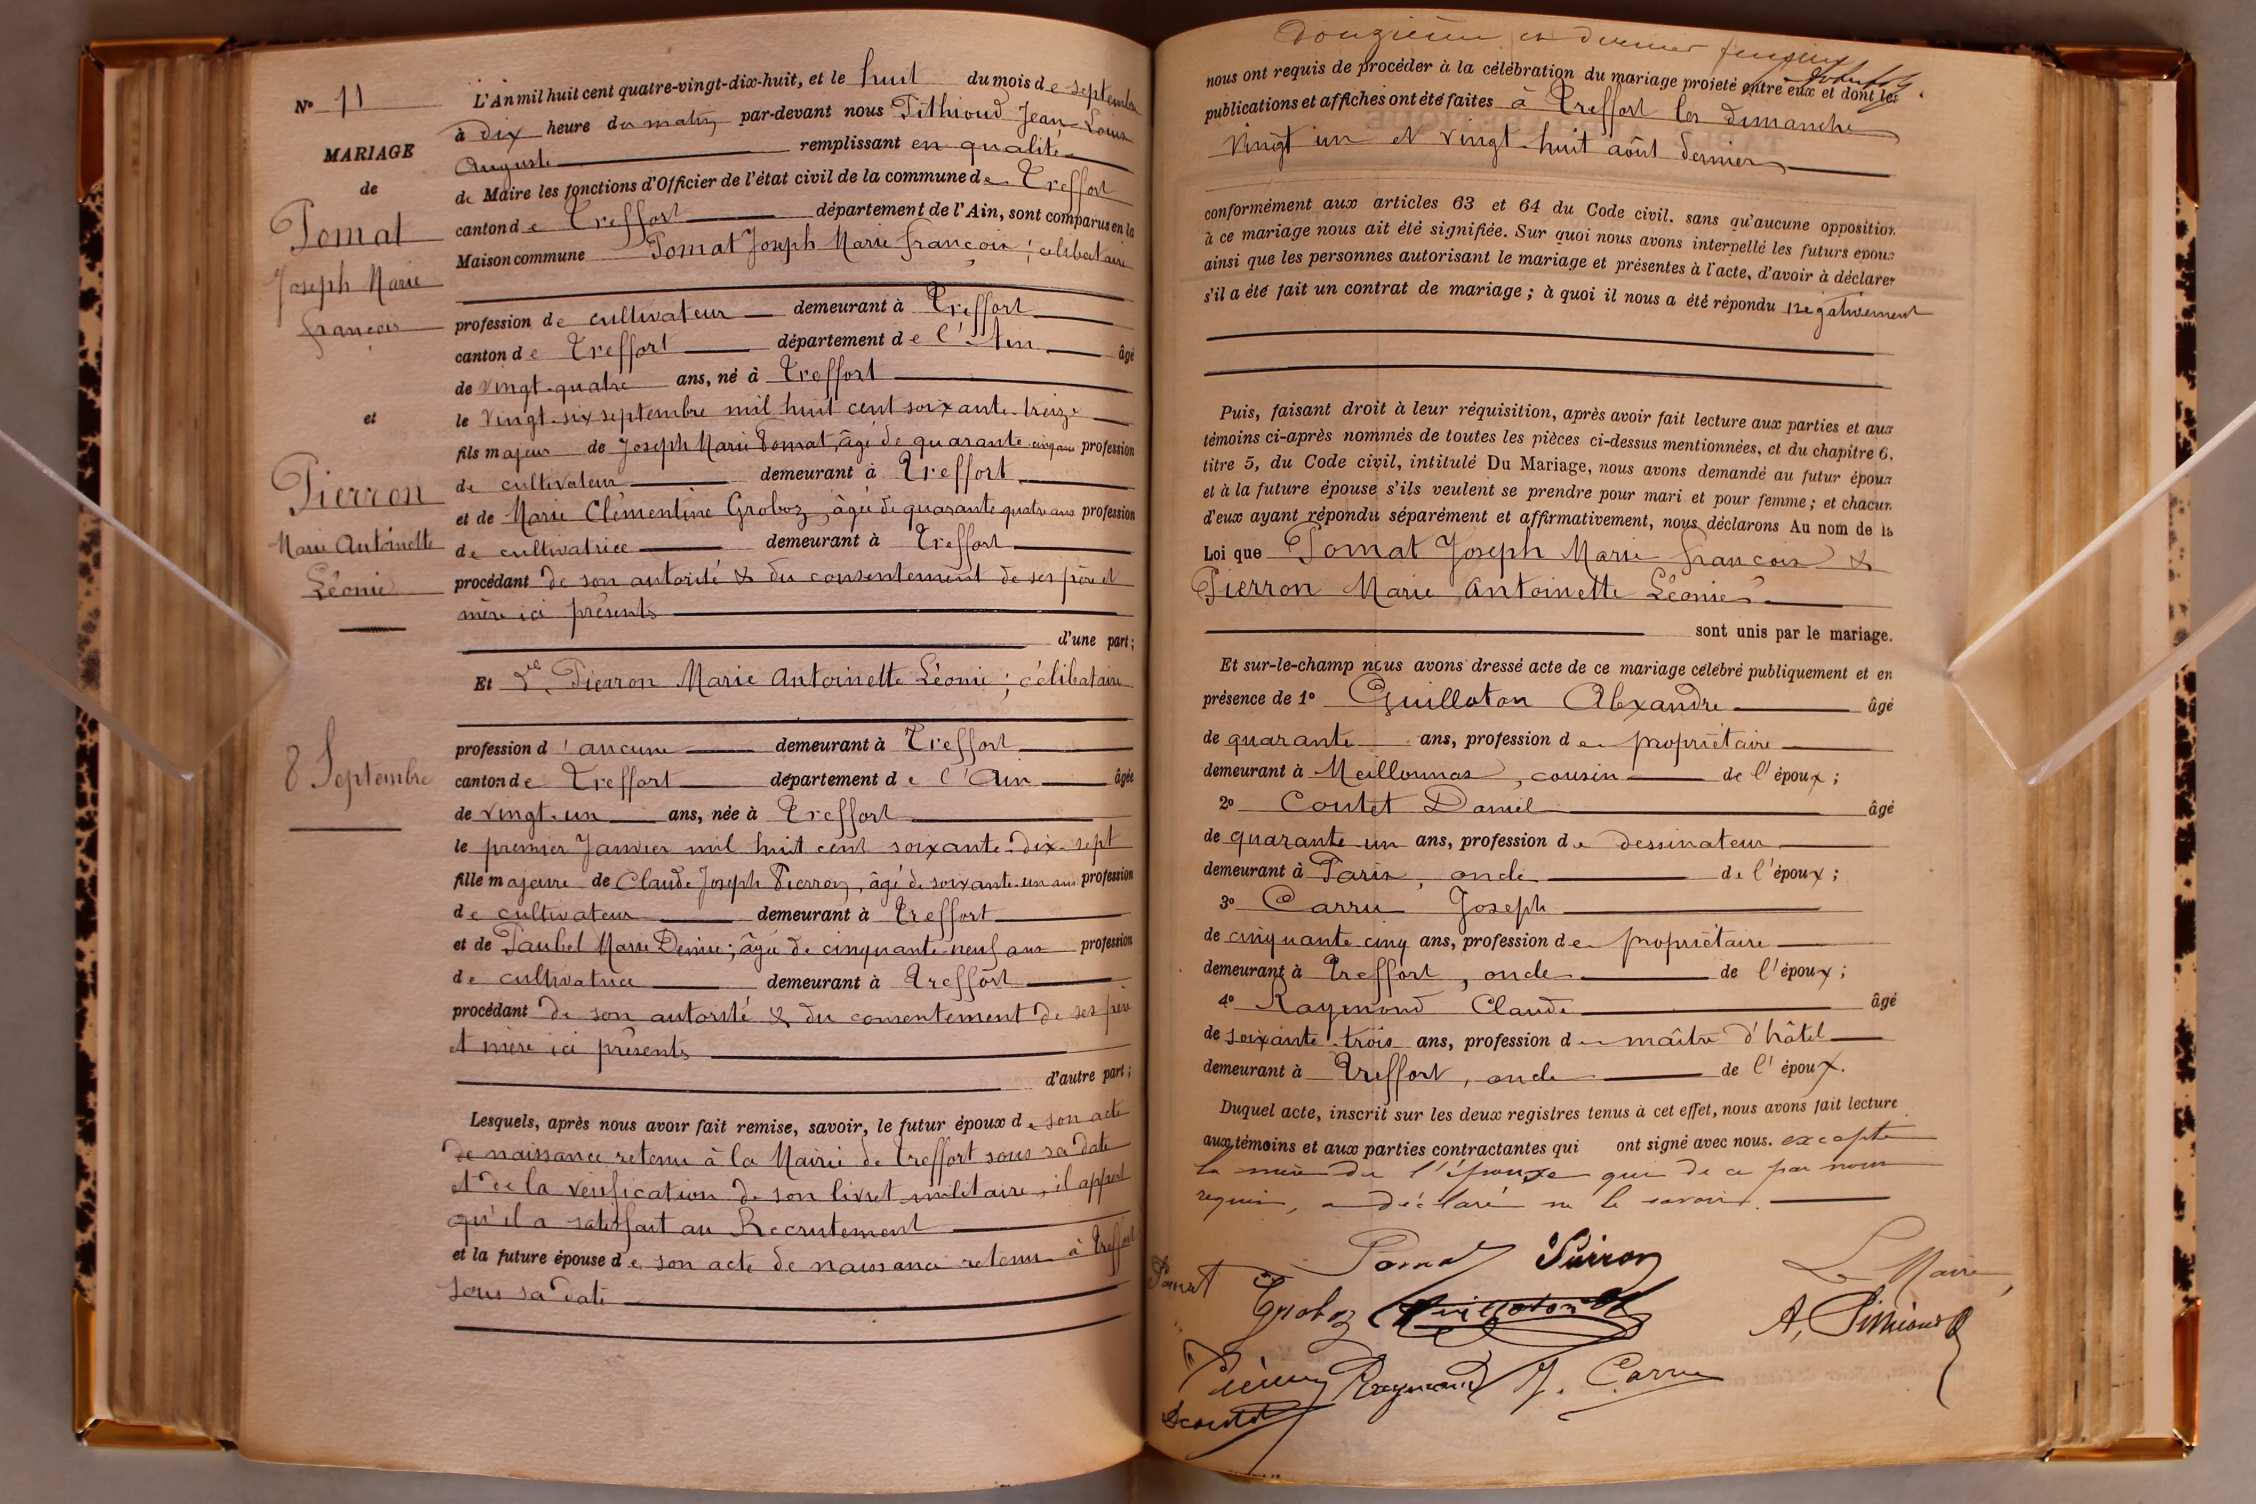 N° 11
MARIAGE
de
Pomat
Joseph Marie
françois
et
Pierron
Marie Antoinette
Léonie
8 Septembre
L'An mil huit cent quatre-vingt-dix-huit, et le huit du mois de septembre
à dix heure du matin par-devant nous Pithioud Jean Louis
Auguste remplissant en qualité
de Maire les fonctions d'Officier de l'état civil de la commune de Treffort
canton de Treffort département de l'Ain, sont comparus en la
Maison commune Pomat Joseph Marie françois ; célibataire
profession de cultivateur demeurant à Treffort
canton de Treffort département de l'Ain âgé
de vingt-quatre ans, né à Treffort
le vingt-six septembre mil huit cent soixante-treize
fils majeur de Joseph Marie Pomat, âgé de quarante cinq ans profession
de cultivateur demeurant à Treffort
et de Marie Clémentine Groboz, âgée de quarante quatre ans profession
de cultivatrice demeurant à Treffort
procédant de son autorité & du consentement de ses père et
mère ici présents
d'une part;
Et Dlle Pierron Marie Antoinette Léonie ; célibataire
profession d'aucune demeurant à Treffort
canton de Treffort département de l'Ain âgée
de vingt-un ans, née à Treffort
le premier Janvier mil huit cent soixante-dix-sept
fille majeure de Claude Joseph Pierron, âgé de soixante-un ans profession
de cultivateur demeurant à Treffort
et de Paubel Marie Denise; âgée de cinquante-neuf ans profession
de cultivatrice demeurant à Treffort
procédant de son autorité & du consentement de ses père
et mère ici présents
d'autre part;
Lesquels, après nous avoir fait remise, savoir, le futur époux de son acte
de naissance retenu à la Mairie de Treffort sous sa date
et de la vérification de son livret militaire, il appert
qu'il a satisfait au Recrutement
et la future épouse de son acte de naissance retenu à Treffort
sous sa date
Douzième et dernier feuillet
nous ont requis de procéder à la célébration du mariage projeté entre eux et dont les
publications et affiches ont été faites à Treffort les dimanche
vingt un et vingt-huit août dernier
conformément aux articles 63 et 64 du Code civil. sans qu'aucune opposition
à ce mariage nous ait été signifiée. Sur quoi nous avons interpellé les futurs époux
ainsi que les personnes autorisant le mariage et présentes à l'acte, d'avoir à déclarer
s'il a été fait un contrat de mariage ; à quoi il nous a été répondu négativement
Puis, faisant droit à leur réquisition, après avoir fait lecture aux parties et aux
témoins ci-après nommés de toutes les pièces ci-dessus mentionnées, et du chapitre 6,
titre 5, du Code civil, intitulé Du Mariage, nous avons demandé au futur époux
et à la future épouse s'ils veulent se prendre pour mari et pour femme ; et chacun
d'eux ayant répondu séparément et affirmativement, nous déclarons Au nom de la
Loi que Pomat Joseph Marie françois &
Pierron Marie Antoinette Léonie
sont unis par le mariage.
Et sur-le-champ nous avons dressé acte de ce mariage célébré publiquement et en
présence de 1° Guilloton Alexandre âgé
de quarante ans, profession de propriétaire
demeurant à Meillonnas, cousin de l'époux ;
2° Coutet Daniel âgé
de quarante un ans, profession de dessinateur
demeurant à Paris, oncle de l'époux ;
3° Carru Joseph
de cinquante cinq ans, profession de propriétaire
demeurant à Treffort, oncle de l'époux ;
4° Raymond Claude âgé
de soixante-trois ans, profession de maître d'hôtel
demeurant à Treffort, oncle de l'époux.
Duquel acte, inscrit sur les deux registres tenus à cet effet, nous avons fait lecture
aux témoins et aux parties contractantes qui ont signé avec nous. excepté
la mère de l'épouse que de ce par nous
requis, a déclaré ne le savoir.
Pomat Pierron Le Maire,
Pomat Groboz Guilloton A. Pithioud
Pierron Raymond J. Carru
DCoutet